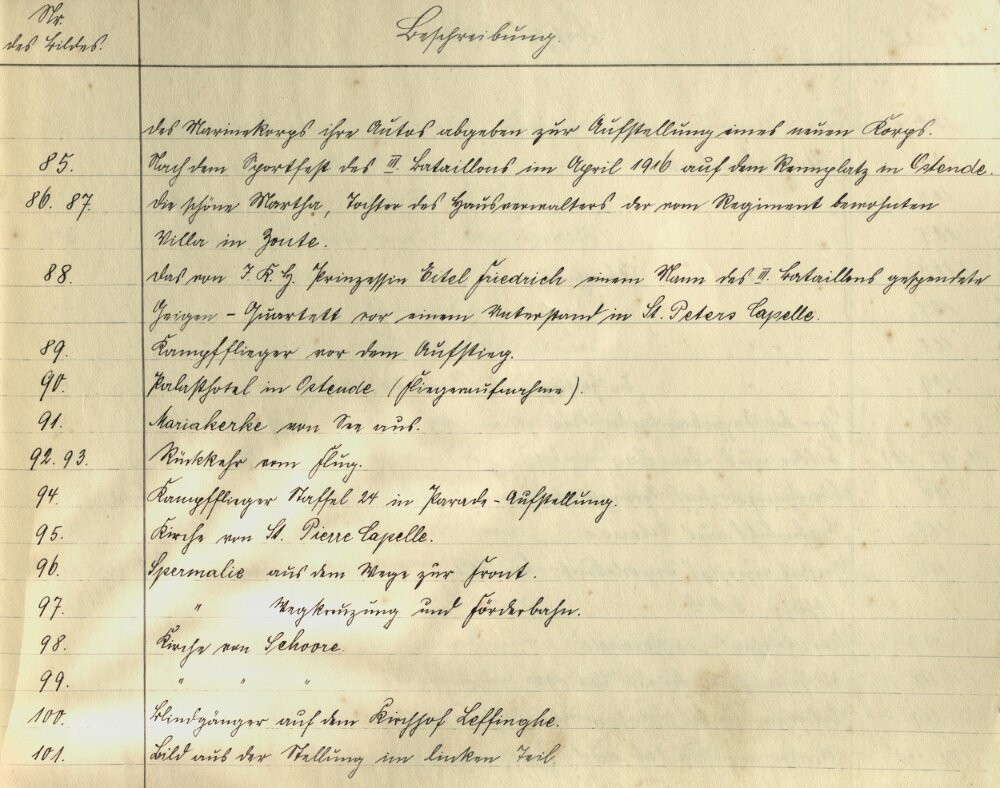 Nr.
des Bildes.
Beschreibung.
des Marinekorps ihre Autos abgeben zur Aufstellung eines neuen Korps.
85. Nach dem Sportfest des III. Bataillons im April 1916 auf dem Rennplatz in Ostende.
86. 87. Die schöne Martha, Tochter des Hausverwalters der vom Regiment bewohnten
Villa in Zoute.
88. Das von I. K. H. Prinzessin Eitel Friedrich einem Mann des III. Bataillons gespendete
Geigen-Quartett vor einem Unterstand in St. Peters Capelle.
89. Kampfflieger vor dem Aufstieg.
90. Palasthotel in Ostende (Fliegeraufnahme).
91. Mariakerke von See aus.
92. 93. Rückkehr vom Flug.
94. Kampfflieger Staffel 24 in Parade-Aufstellung.
95. Kirche von St. Pierre Capelle.
96. Spermalie aus dem Wege zur Front.
97. " Wegkreuzung und Förderbahn.
98. Kirche von Schoore.
99. " " "
100. Blindgänger auf dem Kirchhof Leffinghe.
101. Bild aus der Stellung im linken Teil.